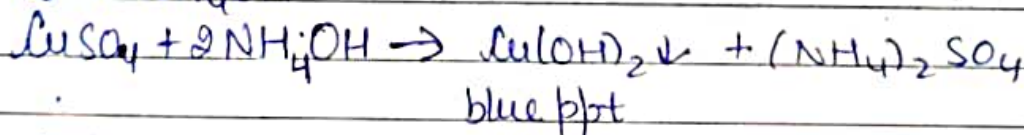 CuSO₄ + 2NH₄OH → Cu(OH)₂↓ + (NH₄)₂SO₄
blue ppt